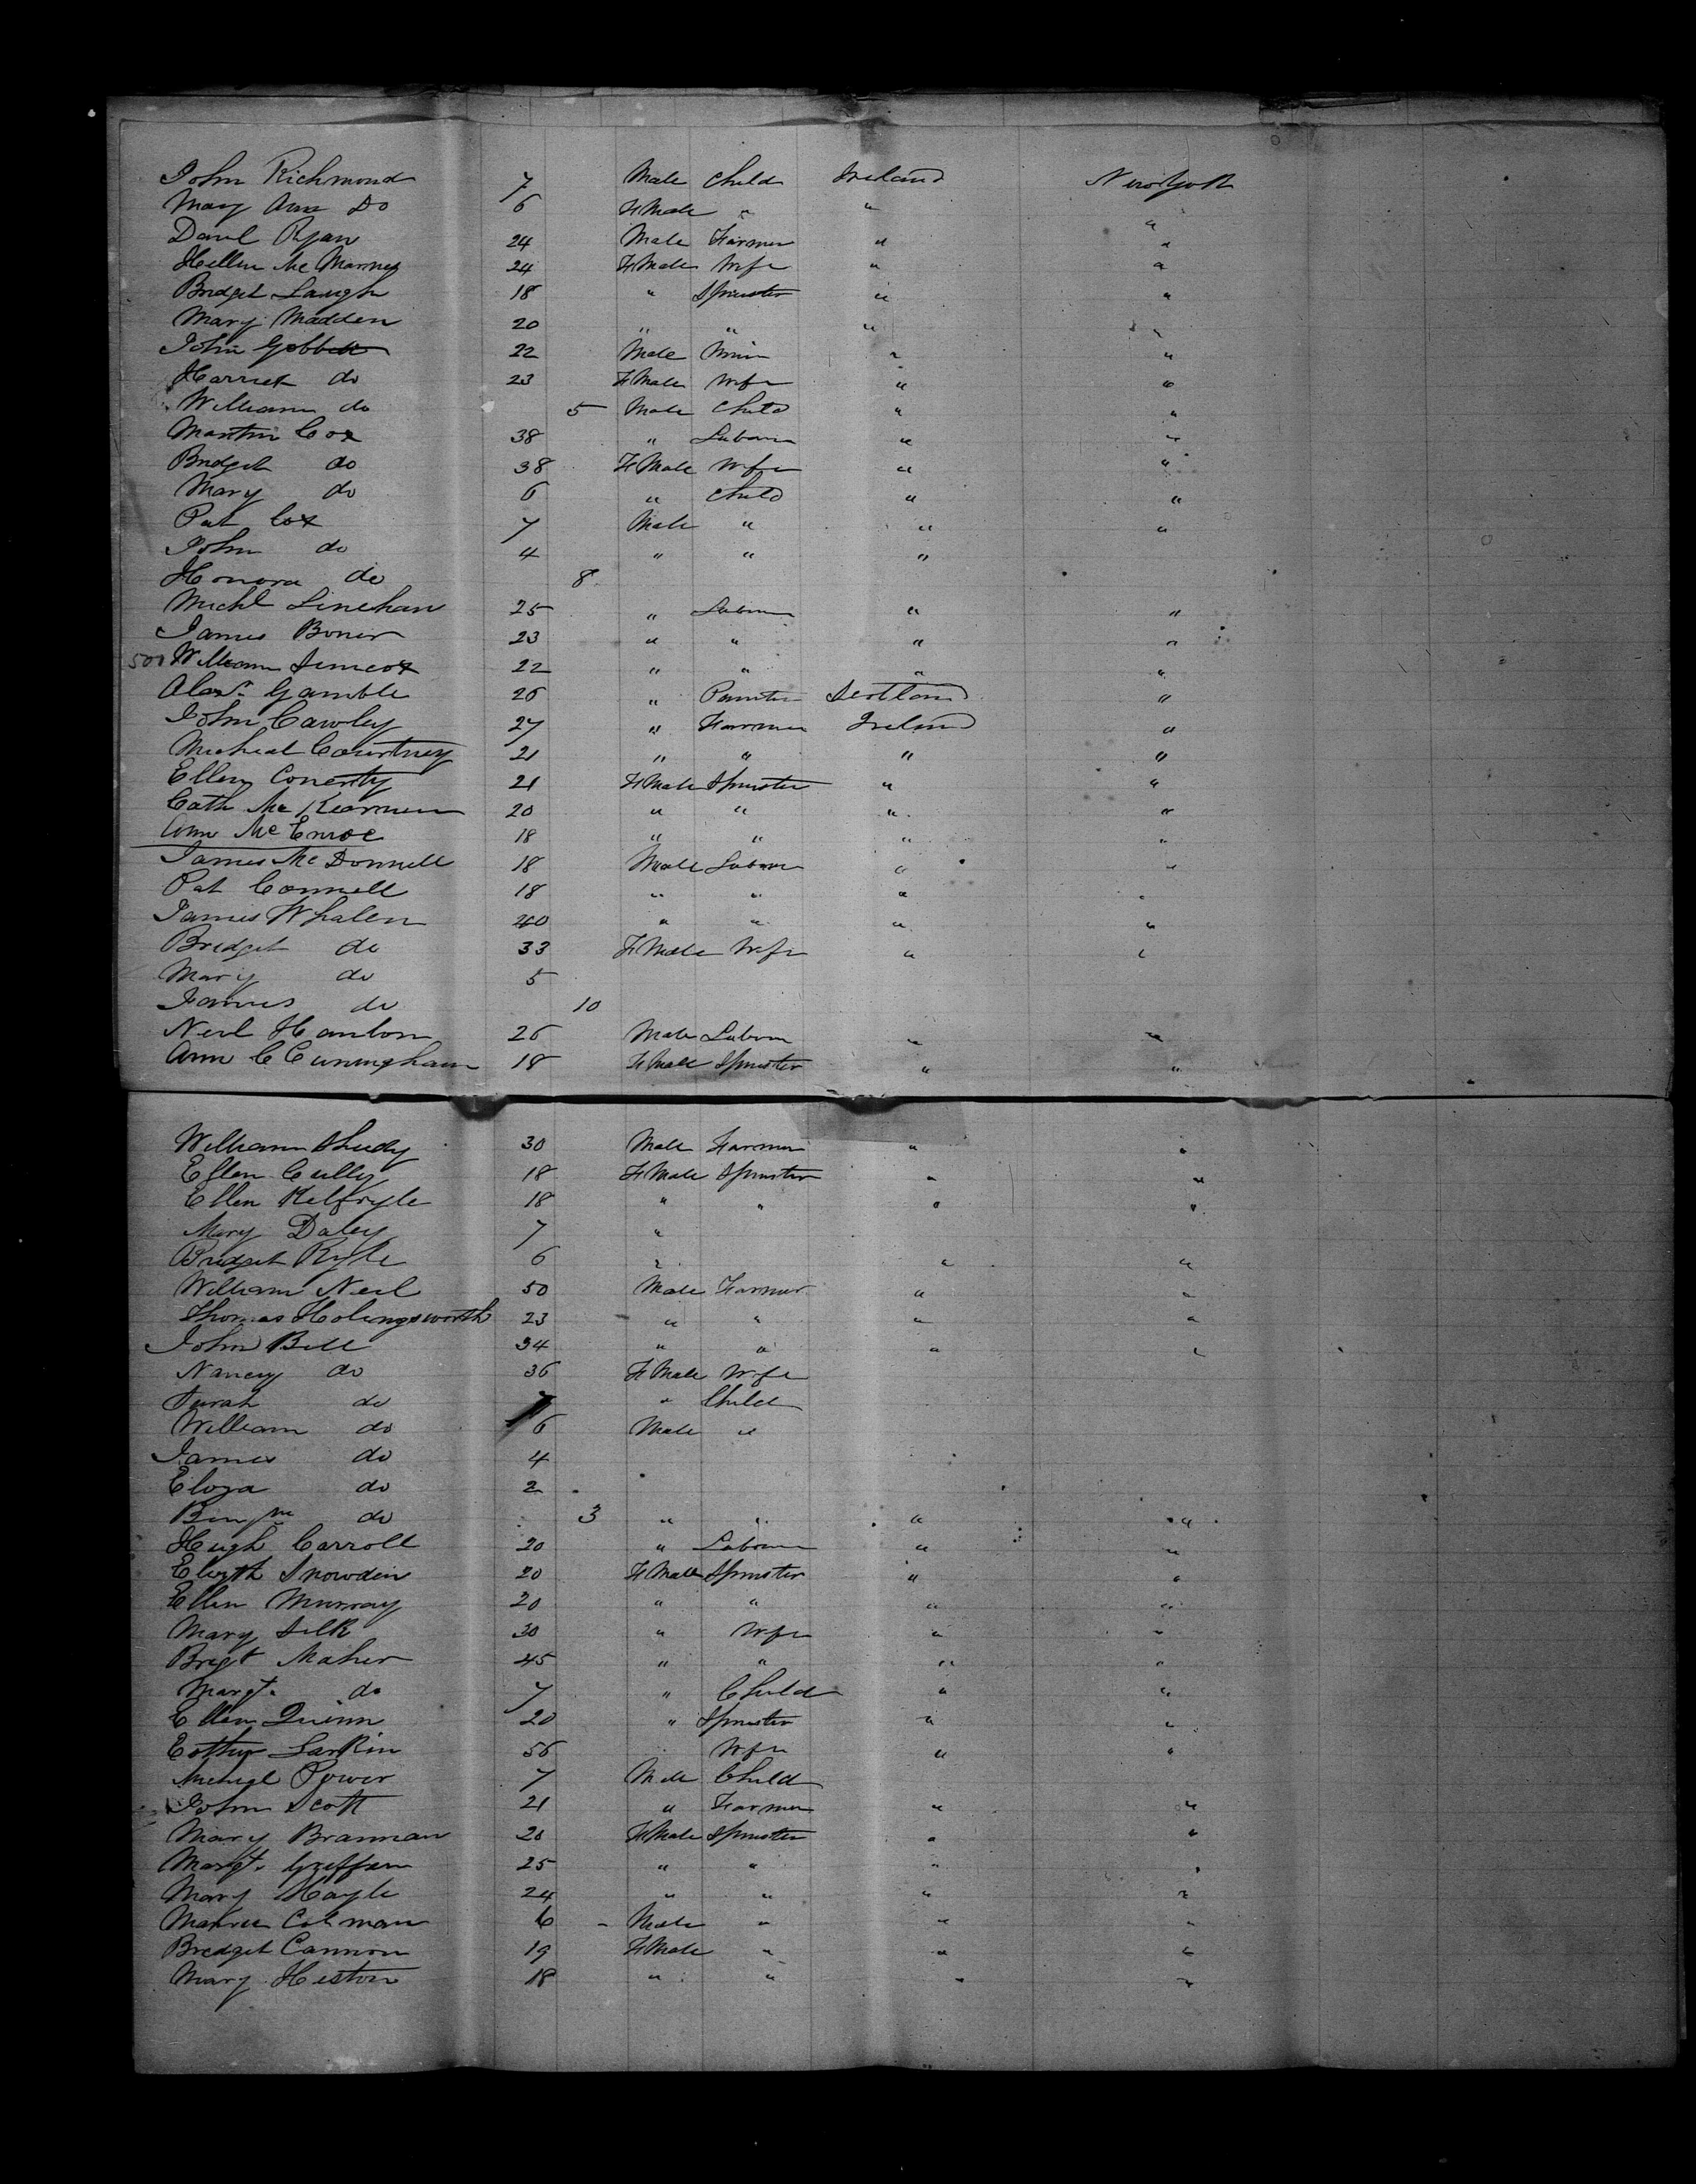 John Richmond 7 Male Child Ireland New York
Mary Ann Do 6 FMale " " "
Danl Ryan 24 Male Farmer " "
Hellen Mc 24 FMale Wife " "
Bridget 18 " Spinster " "
Mary Madden 20 " " " "
John 22 Male " "
Harriet do 23 FMale Wife " "
William do 5 Male Child " "
Martin Cox 38 " Labourer " "
Bridget do 38 FMale Wife " "
Mary do 6 " Child " "
Pat Cox 7 Male " " "
John do 4 " " "
Honora do 8
Michl Linehan 25 " Labourer " "
James Boner 23 " " " "
500 William Simcox 22 " " " "
Alexr. Gamble 26 " Painter Scotland "
John Cawley 27 " Farmer Ireland "
Micheal Courtney 21 " " " "
Ellen 21 FMale Spinster " "
Cath Mc Kiernan 20 " " " "
Ann Mc Enroe 18 " " " "
James Mc Donnell 18 Male Labourer " "
Pat Connell 18 " " " "
James Whalen 40 " " " "
Bridget do 33 FMale Wife " "
Mary do 5
James do 10
Neil Hanlon 26 Male Labourer " "
Ann C Cuningham 18 FMale Spinster " "
William 30 Male Farmer " "
Ellen Cully 18 FMale Spinster " "
Ellen 18 " " " "
Mary Daley 7 "
Bridget Ryle 6 " " "
William Neil 50 Male Farmer " "
Thomas Holingsworth 23 " " " "
John Bell 34 " " " "
Nancy do 36 FMale Wife
Surah do 7 " Child
William do 6 Male "
James do 4
Eloza do 2
do 3 " " " "
Hugh Carroll 20 " Labourer " "
Elizth Snowden 20 FMale Spinster " "
Ellen Murray 20 " " " "
Mary Silk 30 " Wife " "
Brigt Maher 45 " " " "
Margt. do 7 " Child " "
Ellen Quinn 20 " Spinster " "
Esther Larkin 56 Wife " "
Micheal Power 7 Male Child
John Scott 21 " Farmer " "
Mary Brannan 20 FMale Spinster " "
Margt. Griffen 25 " " " "
Mary 24 " " " "
Colman 6 - Male " " "
Bridget Cannon 19 FMale " " "
Mary Heston 18 " " " "